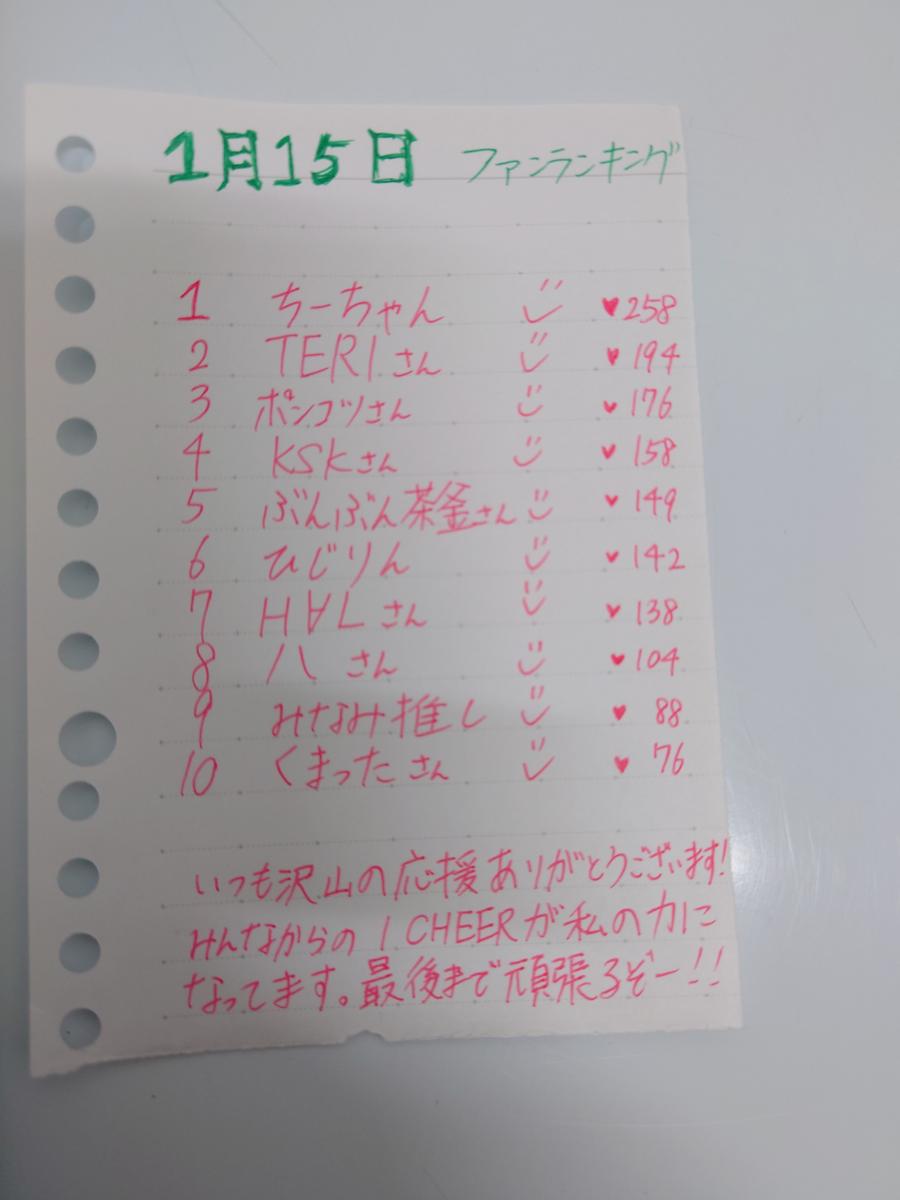 1月15日 ファンランキング
1 ちーちゃん ♥258
2 TERIさん ♥194
3 ポンコツさん ♥176
4 KSKさん ♥158
5 ぶんぶん茶釜さん ♥149
6 ひじりん ♥142
7 H∀Lさん ♥138
8 八さん ♥104
9 みなみ推し ♥88
10 くまったさん ♥76
いつも沢山の応援ありがとうございます!
みんなからの1CHEERが私の力に
なってます。最後まで頑張るぞー!!